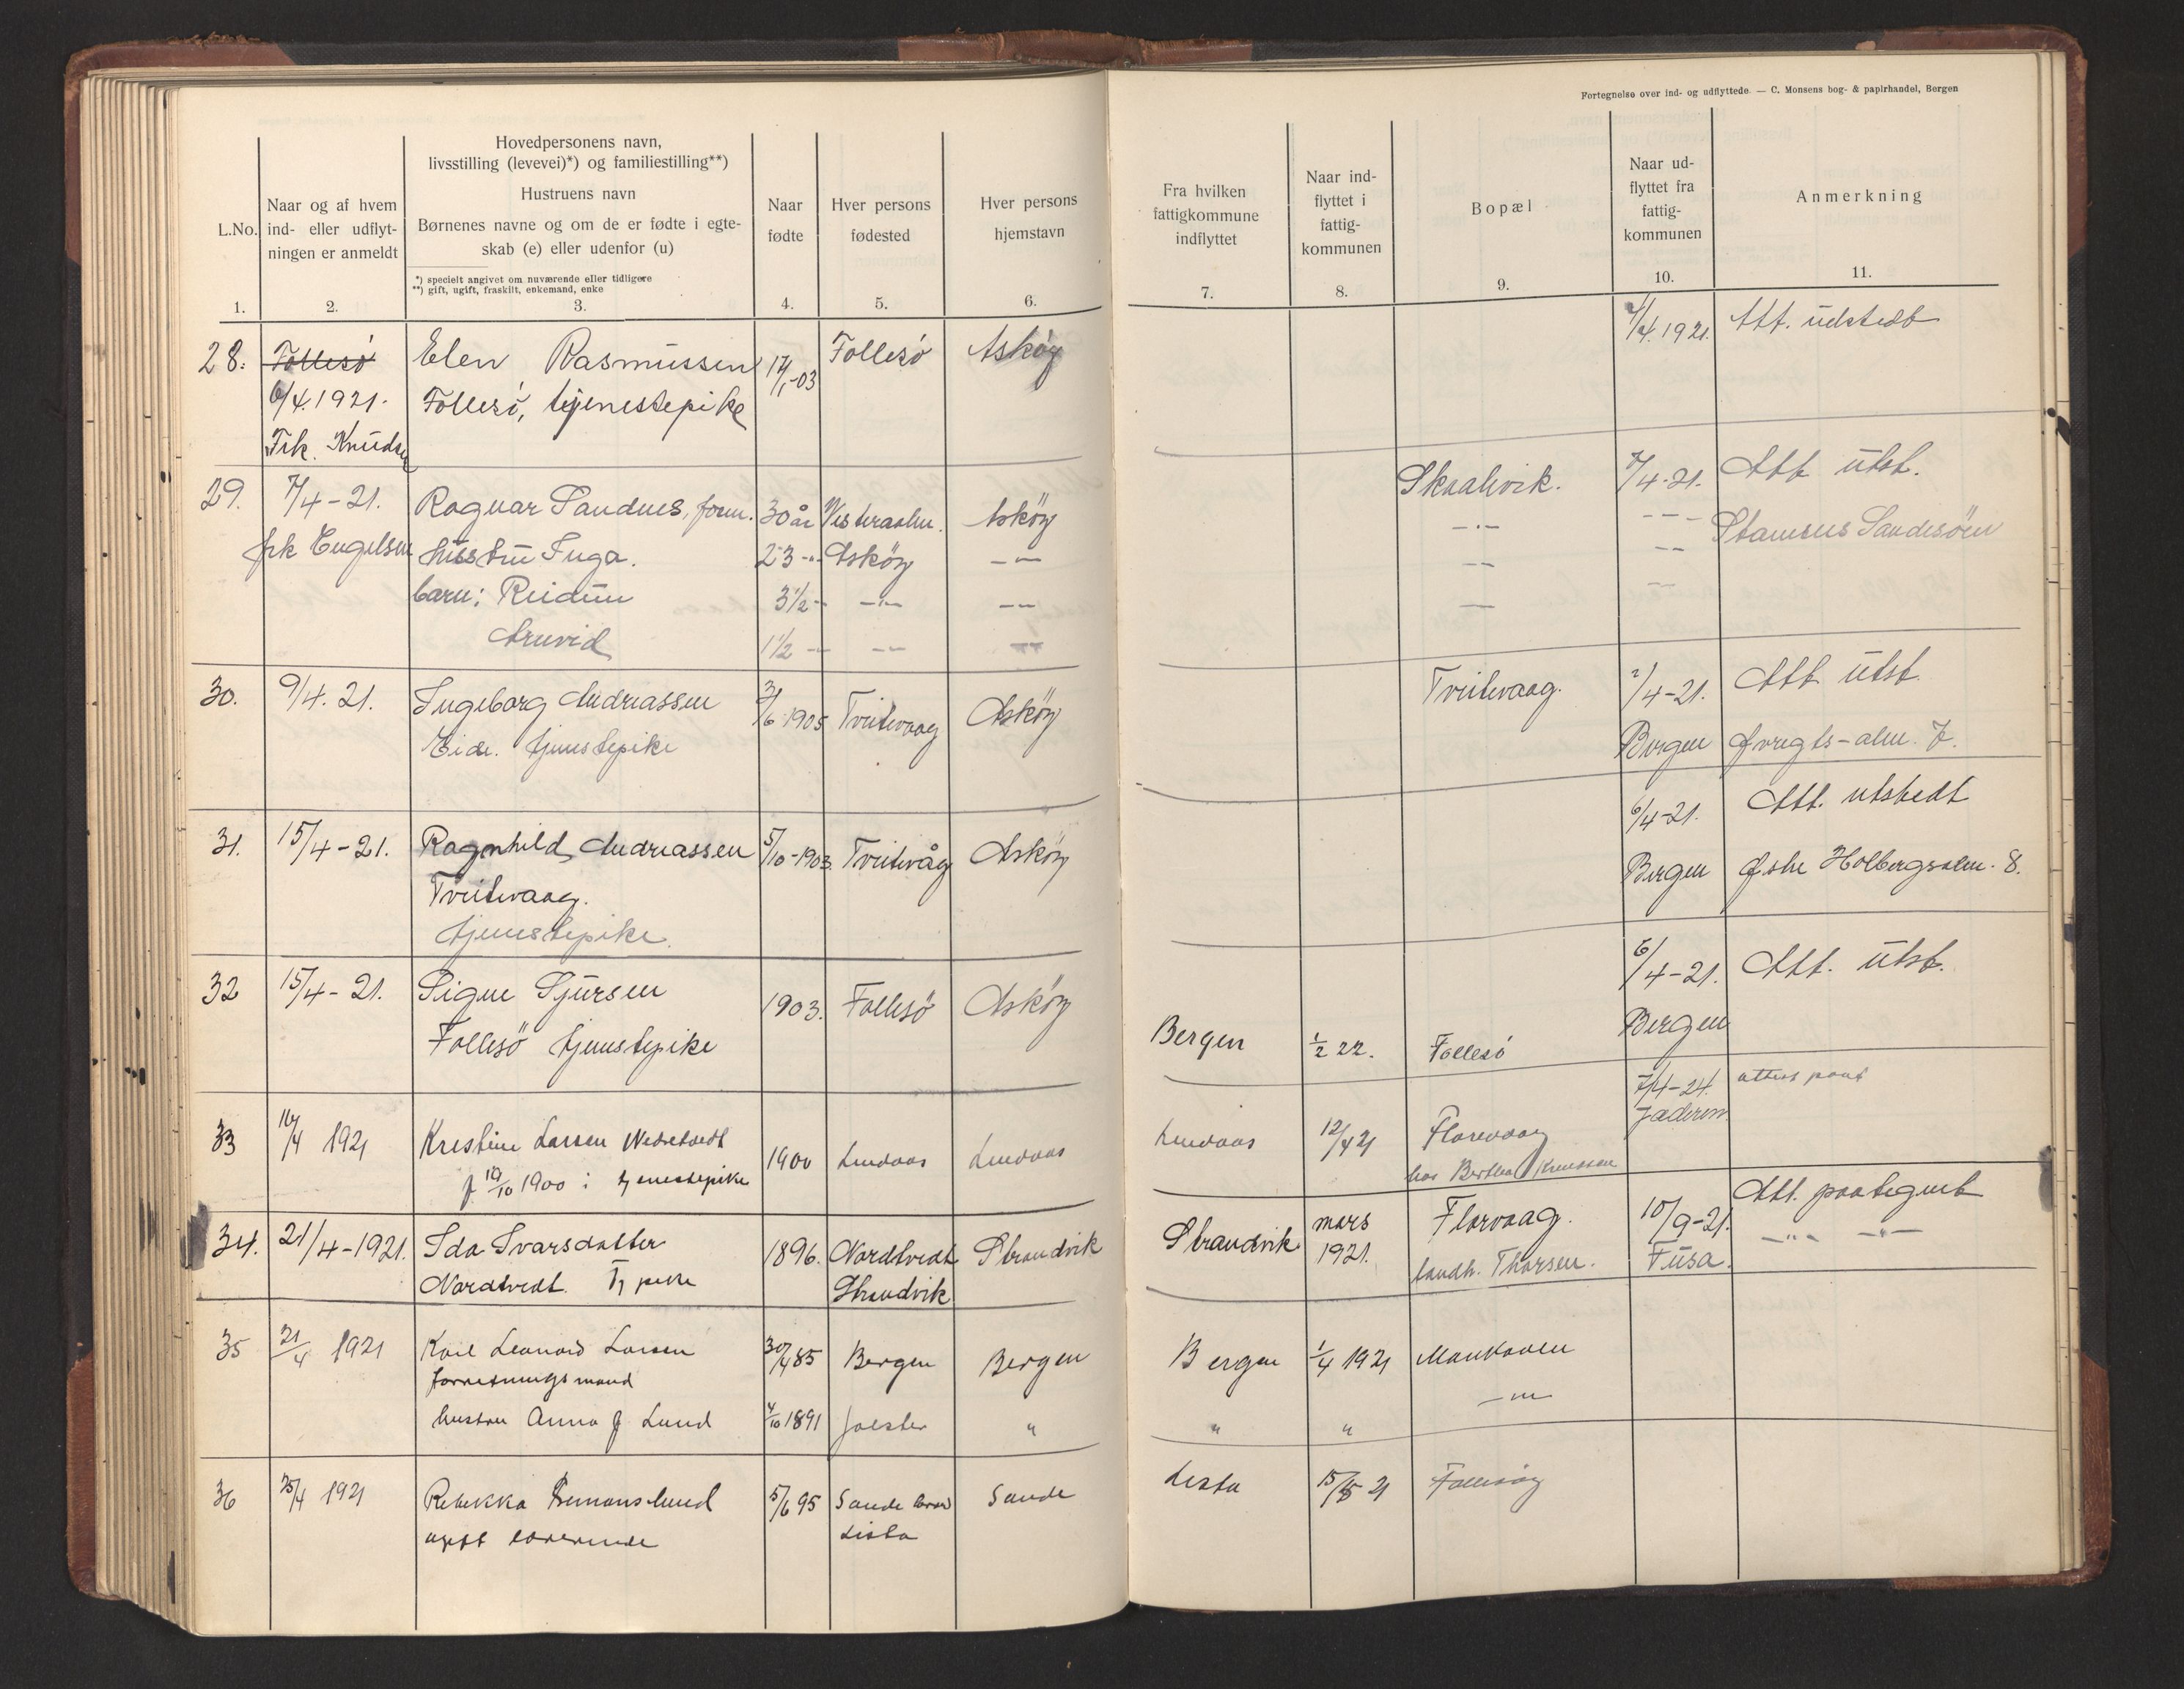 Fortegnelse over ind- og udflyttede — C. Monsens bog- & papirhandel, Bergen
L.No.
1.
Naar og af hvem
ind- eller udflyt-
ningen er anmeldt
2.
Hovedpersonens navn,
livsstilling (levevei)*) og familiestilling**)
Hustruens navn
Børnenes navne og om de er fødte i egte-
skab (e) eller udenfor (u)
*) specielt angivet om nuværende eller tidligere
**) gift, ugift, fraskilt, enkemand, enke
3.
Naar
fødte
4.
Hver persons
fødested
5.
Hver persons
hjemstavn
6.
Fra hvilken
fattigkommune
indflyttet
7.
Naar ind-
flyttet i
fattig-
kommunen
8.
Bopæl
9.
Naar ud-
flyttet fra
fattig-
kommunen
10.
Anmerkning
11.
28. Follesö Elen Rasmussen 17/1-03 Follesö Asköy /4.1921. Att. udstedt
6/4.1921. Follesö, tjenestepike
Frk. Knudsen
29. 7/4-21. Ragnar Sandnes, 30 år Asköy Skaalvik. 7/4-21. Att utst.
frk Engelsen hustru Inga. 23 -"- Asköy -"- -"- -"- Sandesören
barn: Reidun 3 1/2 - -"- -"- -"- -"-
Arnvid 1 1/2 -"- -"- -"- -"- -"-
30. 9/4. 21. Ingeborg Andreassen 3/6-1905 Tveitevaag Asköy Tveitevaag. 2/4-21. Att utst.
Eide. tjenestepike Bergen -alm. 7.
31. 15/4-21. Ragnhild Andreassen 5/10-1903. Tveitevåg Asköy 6/4-21. Att. utstedt
Tveitevaag. Bergen Østre Holbergsalm. 8.
tjenestepike.
32 15/4-21. Signe Sjursen 1903. Follesö Asköy 6/4-21. Att. utst.
Follesö tjenestepike Bergen 1/2 22. Follesö Bergen
33 16/4 1921 Kristine Larsen 1900 Lindaas Lindaas Lindaas 12/4 21 Florvaag 7/4-24. attest paat
f. 19/10 1900 i tjenestepike hos Bertha Knudsen Jæderen
34. 21/4-1921. Ida Ivarsdatter 1896. Nordtvedt Strandvik Strandvik mars Florvaag. 10/9-21. Att. paategnet
Nordtvedt. Tj pike Strandvik 1921. landh. Thorsen. Fusa. -"- -"-
35 21/4 1921 Karl Leonard Larsen 30/4 85 Bergen Bergen Bergen 1/4 1921 Marikoven
forretningsmand -"-
hustru Anna f. Lund 4/10 1891 Jølster " " "
36 25/4 1921 Rebekka Simonslund 5/6 95 Sande Sande Lista 15/8 21 Follesöy
ugift lærerinde Lista